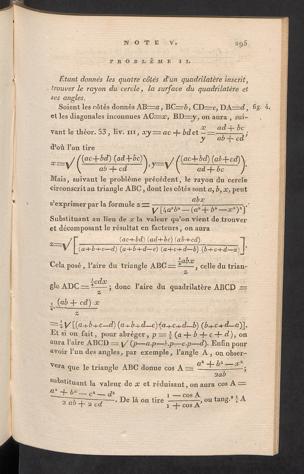 NOTE V. 295
PROBLÊME II.
Étant donnés les quatre côtés d'un quadrilatère inscrit,
trouver le rayon du cercle, la surface du quadrilatère et
ses angles.
Soient les côtés donnés AB=a, BC=b, CD=c, DA=d, fig. 4.
et les diagonales inconnues AC=x, BD=y, on aura, sui-
vant le théor. 33, liv. III, xy=ac+bd et x/y = (ad+bc)/(ab+cd)
d'où l'on tire
x=√((ac+bd)(ad+bc)/(ab+cd)), y=√((ac+bd)(ab+cd)/(ad+bc)).
Mais, suivant le problême précédent, le rayon du cercle
circonscrit au triangle ABC, dont les côtés sont a, b, x, peut
s'exprimer par la formule z = abx/√[4a²b²—(a²+b²—x²)²].
Substituant au lieu de x la valeur qu'on vient de trouver
et décomposant le résultat en facteurs, on aura
z=√[(ac+bd)(ad+bc)(ab+cd)/(a+b+c—d)(a+b+d—c)(a+c+d—b)(b+c+d—a)].
Cela posé, l'aire du triangle ABC = ¼abx/z, celle du trian-
gle ADC = ¼cdx/z; donc l'aire du quadrilatère ABCD =
¼(ab+cd)x/z
=¼√[(a+b+c—d)(a+b+d—c)(a+c+d—b)(b+c+d—a)].
Et si on fait, pour abréger, p=½(a+b+c+d), on
aura l'aire ABCD=√(p—a.p—b.p—c.p—d). Enfin pour
avoir l'un des angles, par exemple, l'angle A, on obser-
vera que le triangle ABC donne cos A = (a²+b²—x²)/2ab;
substituant la valeur de x et réduisant, on aura cos A =
(a²+b²—c²—d²)/(2ab+2cd). De là on tire (1—cos A)/(1+cos A), ou tang.² ½ A